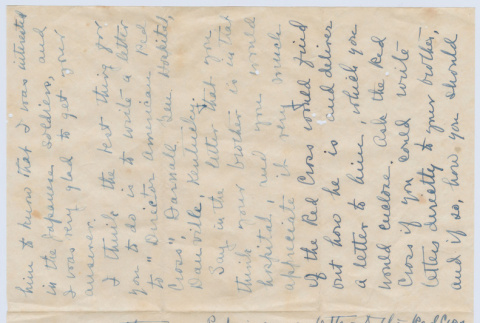 him to know that I was interested
in the Japanese soldiers, and
I was very glad to get your
answer.
I think the best thing for
you to do is to write a letter
to "Director American Red
Cross" Darnall Gen Hospital,
Danville, Kentucky.
Say in the letter that you
think your brother is in that
hospital, and you would
appreciate it very much
if the Red Cross would find
out how he is and deliver
a letter to him, which you
would enclose. Ask the Red
Cross if you could write
letters directly to your brother,
and if so, how you should